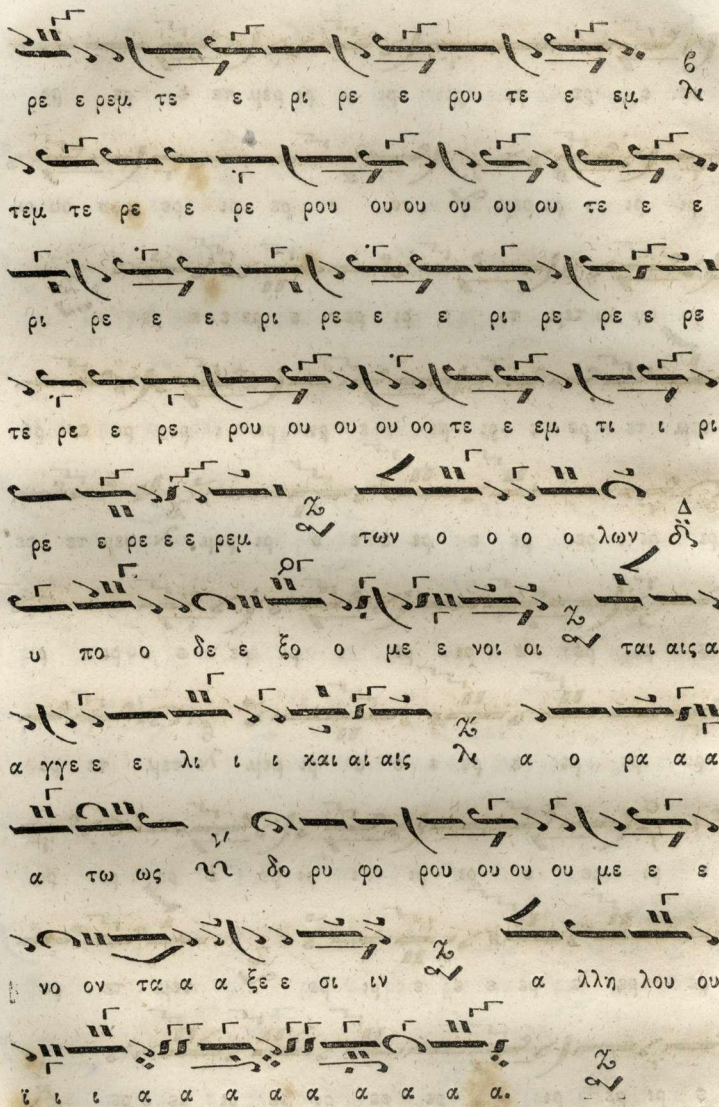 ρε ε ρεμ τε ε ρι ρε ε ρου τε ε εμ
τεμ τε ρε ε ρε ρου ου ου ου ου ου τε ε ε
ρι ρε ε ε ρι ρε ε ε ρι ρε ρε ε ρε
τε ρε ε ρε ρου ου ου ου οο τε ε εμ τι ι ρι
ρε ε ρε ε ε ρεμ Ζ των ο ο ο ο λων Δ
υ πο ο δε ε ξο ο με ε νοι οι Ζ ται αις α
α γγε ε ε λι ι ι και αι αις Ζ α ο ρα α α
α τω ως ν δο ρυ φο ρου ου ου ου με ε ε
νο ον τα α α ξε ε σι ιν Ζ α λλη λου ου
ϊ ι ι α α α α α α α α α α. Ζ